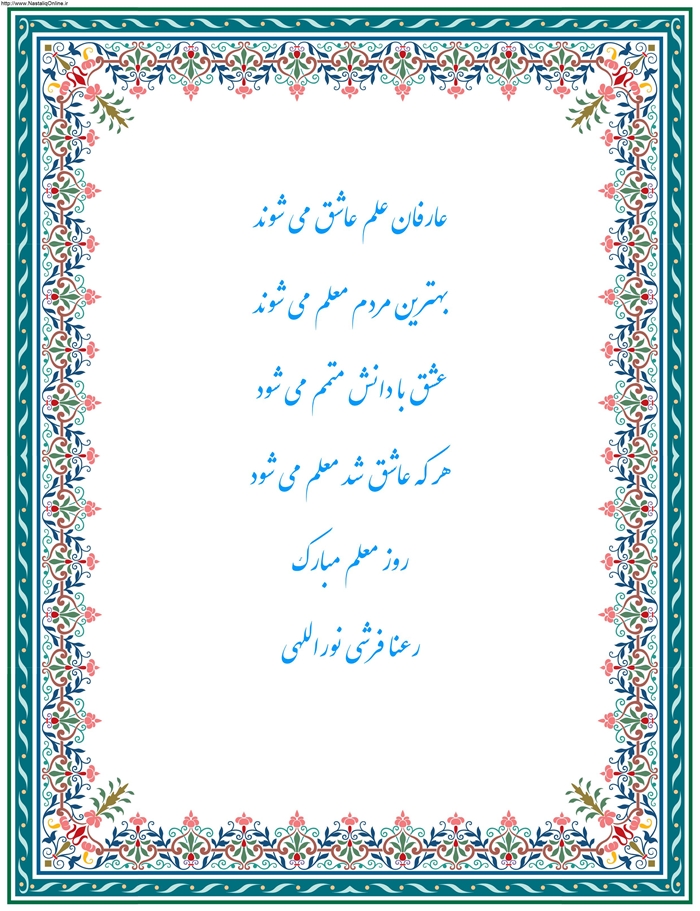 http://www.NastaliqOnline.ir
عارفان علم عاشق می شوند
بهترین مردم معلم می شوند
عشق با دانش متمم می شود
هر که عاشق شد معلم می شود
روز معلم مبارک
رعنا فرشی نور اللهی